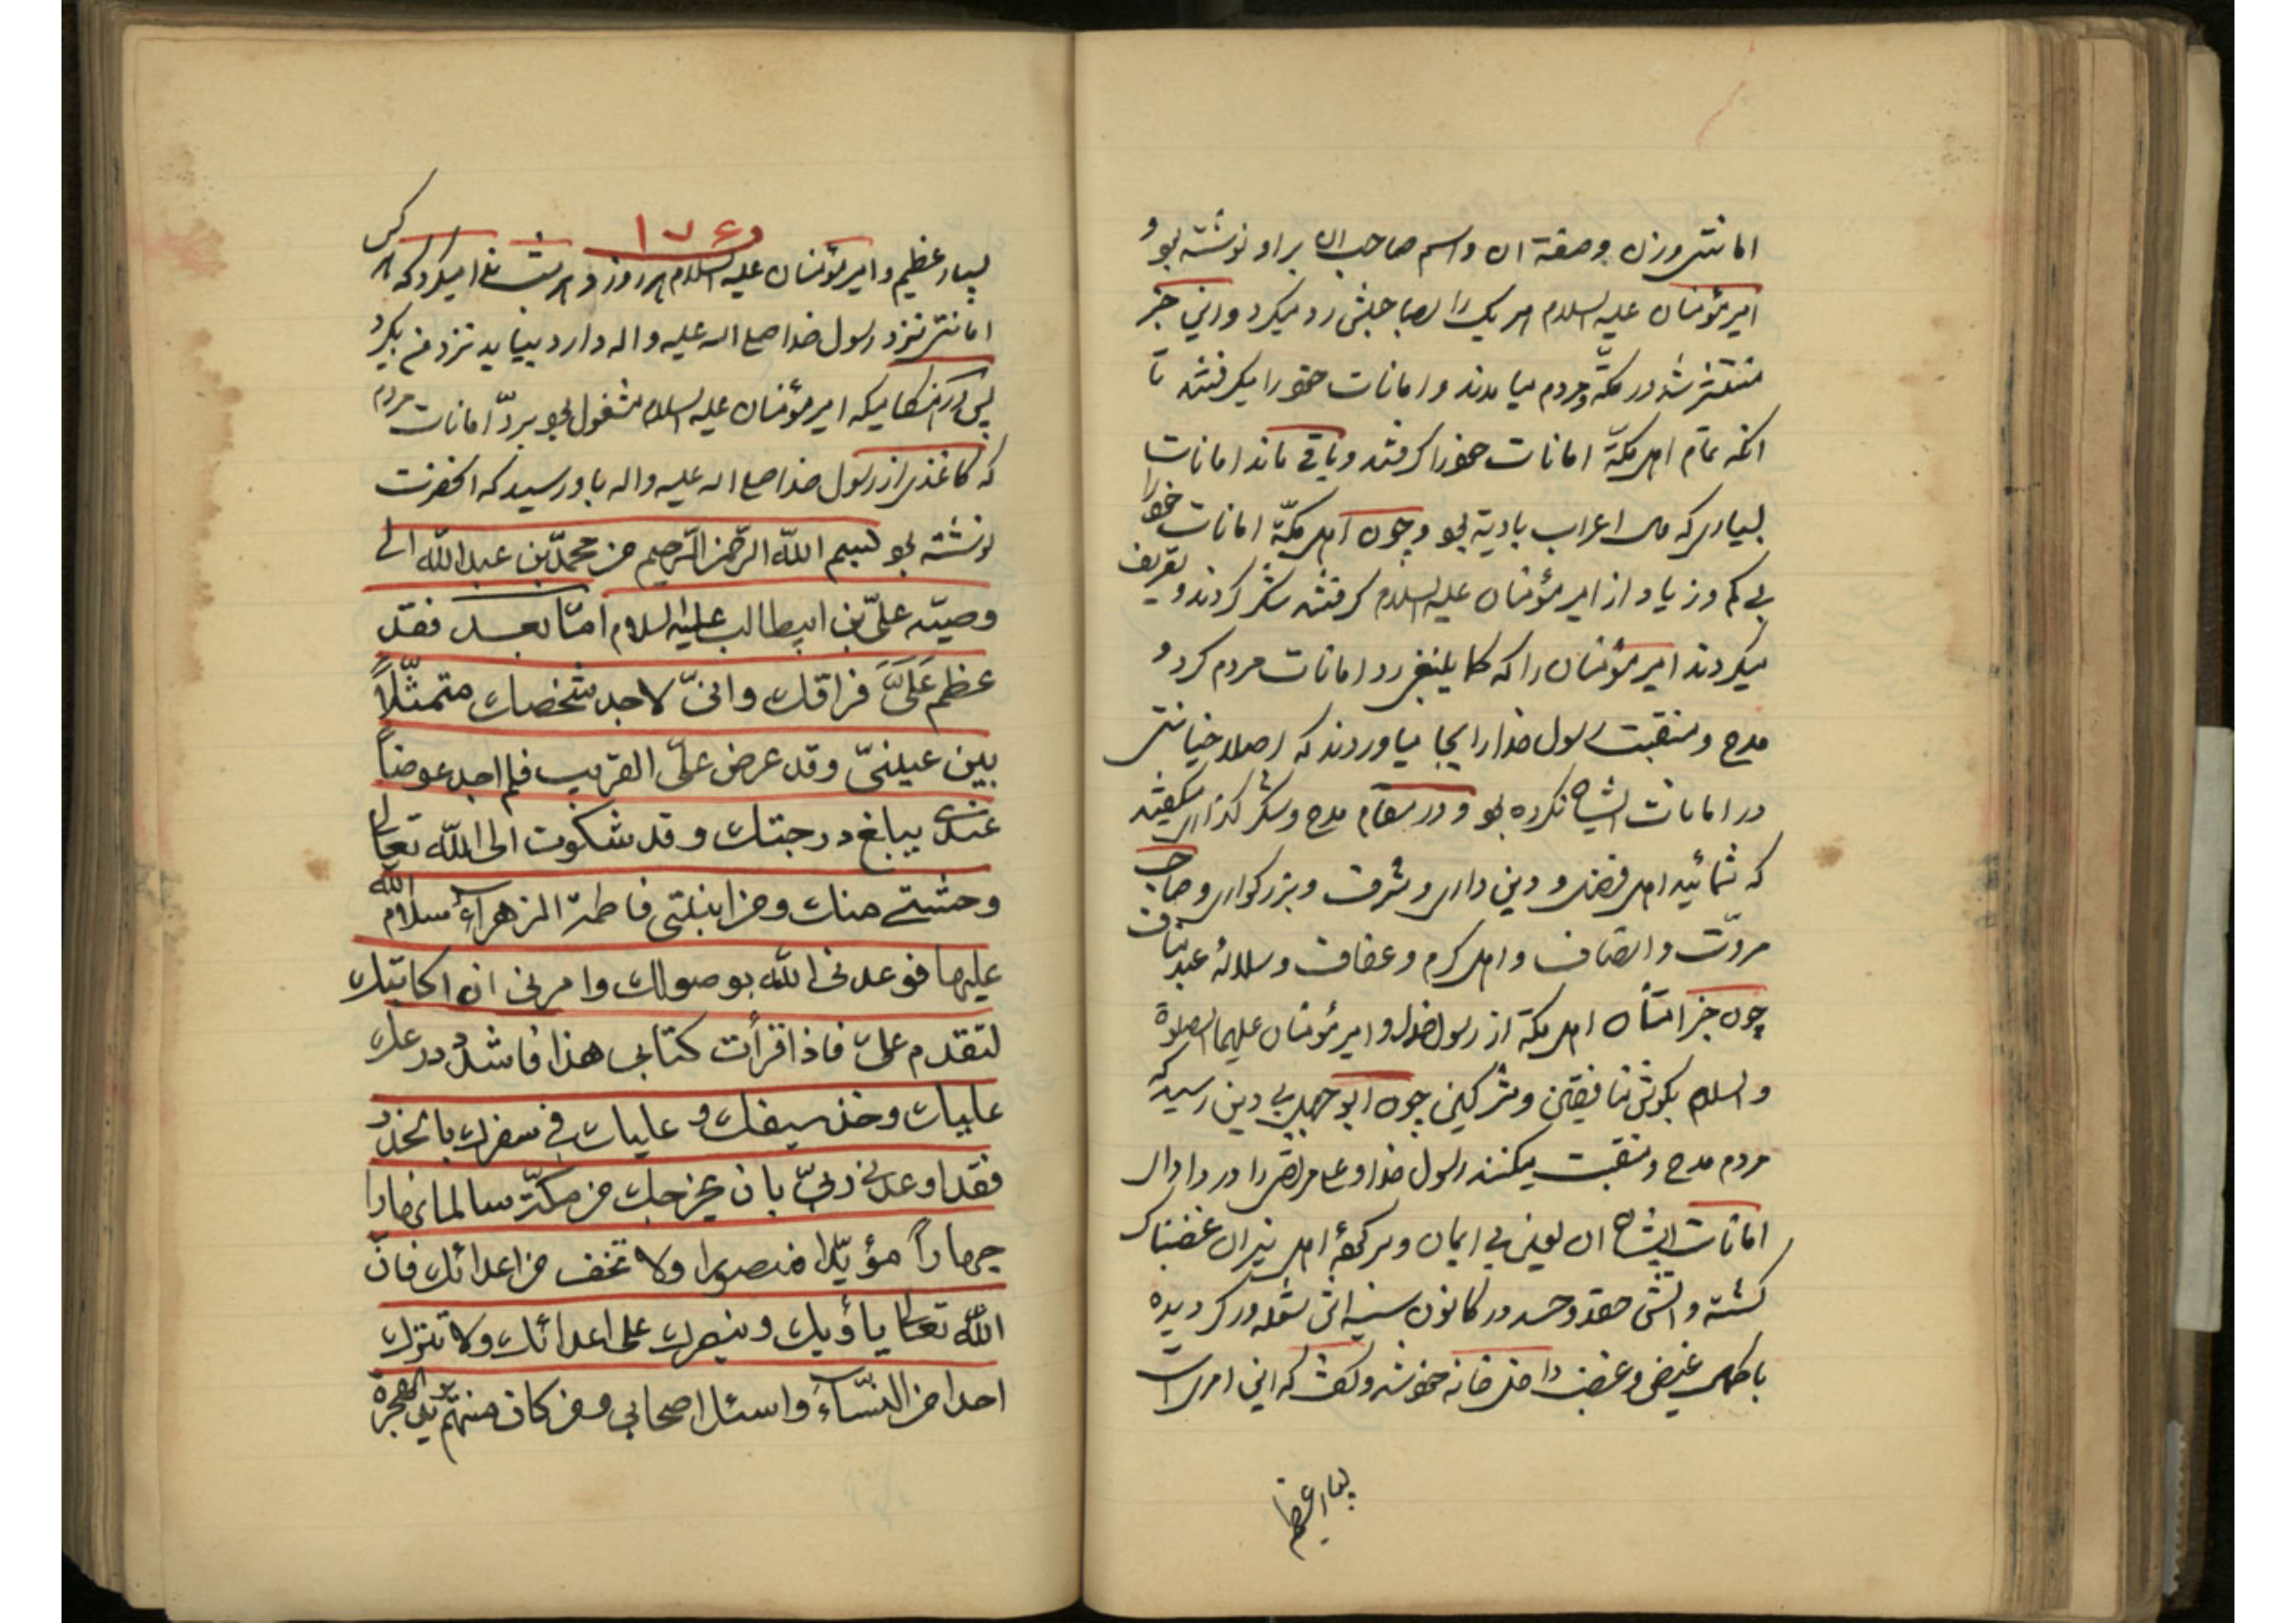 امانتش وزن وصفة ان واسم صاحب ان براو نوشته بود و
امیرمؤمنان علیه السلام هر یک را بصاحبش رد میکرد واین خبر
منتشر شد در مکّه ومردم میامدند و امانات خود را میگرفتند تا
انکه تمام اهل مکّه امانات خود را گرفتند و باقی ماند امانات
بسیاری که مال اعراب بادیة بود وچون اهل مکّة امانات خود را
بی کم و زیاد از امیرمؤمنان علیه السلام گرفتند شکر کردند و تعریف
میکردند امیرمؤمنان را که کما ینبغی رد امانات مردم کرد و
مدح ومنقبت رسول خدا را بجا میاوردند که اصلا خیانتی
در امانات ایشان نکرده بود و در مقام مدح وشکر گذاری میگفتند
که شمائید اهل فضل و دین داری و شرف و بزرگواری و صاحب
مروّت و انصاف و اهل کرم و عفاف و سلالهٔ عبد مناف
چون خبر امتنان اهل مکّة از رسول خدا و امیرمؤمنان علیهما الصلوة
والسلام بگوش منافقین ومشرکین چون ابوجهل بی دین رسید که
مردم مدح ومنقبت میکنند رسول خدا و علی مرتضی را در ادای
امانات ایشان ان لعین بی ایمان و سرکردهٔ اهل نیران غضبناک
گشته و اتش حقد وحسد در کانون سینه اش شعله ور گردیده
با کمال غیض و غضب داخل خانه خود شد و گفت که این امری است
بسیار عظیم
۱۷۶
بسیار عظیم و امیرمؤمنان علیه السلام هر روز و هر شب ندا میکرد که هر کس
امانتی نزد رسول خدا صلی الله علیه واله دارد بیاید نزد من بگیرد
پس در هنگامیکه امیرمؤمنان علیه السلام مشغول بود بردّ امانات مردم
که کاغذی از رسول خدا صلی الله علیه واله باو رسید که انحضرت
نوشته بود بسم الله الرّحمن الرّحیم من محمّد بن عبد الله الی
وصیّه علیّ بن ابیطالب علیه السلام امّا بعد فقد
عظم عَلَیَّ فراقك وانّی لاجد شخصك متمثّلاً
بین عینیّ وقد عرض علیّ القریب فلم اجد عوضاً
عندی یبلغ درجتك وقد شکوت الی الله تعالی
وحشتی منك ومن ابنتی فاطمة الزهراء سلام الله
علیها فوعدنی الله بوصولك وامرنی ان اکاتبك
لتقدم علیّ فاذا قرأت کتابی هذا فاشدد درعك
علیك وخذ سیفك و علیك فی سفرك بالحذر
فقد اوعدنی ربّی بان یخرجك من مکّة سالما نهارا
جهاراً مؤیّدا منصورا ولا تخف من اعدائك فانّ
الله تعالی یأویك وینصرك علی اعدائك ولا تترك
احدا من النّساء واسئل اصحابی ومن کان منهم یرید الهجرة